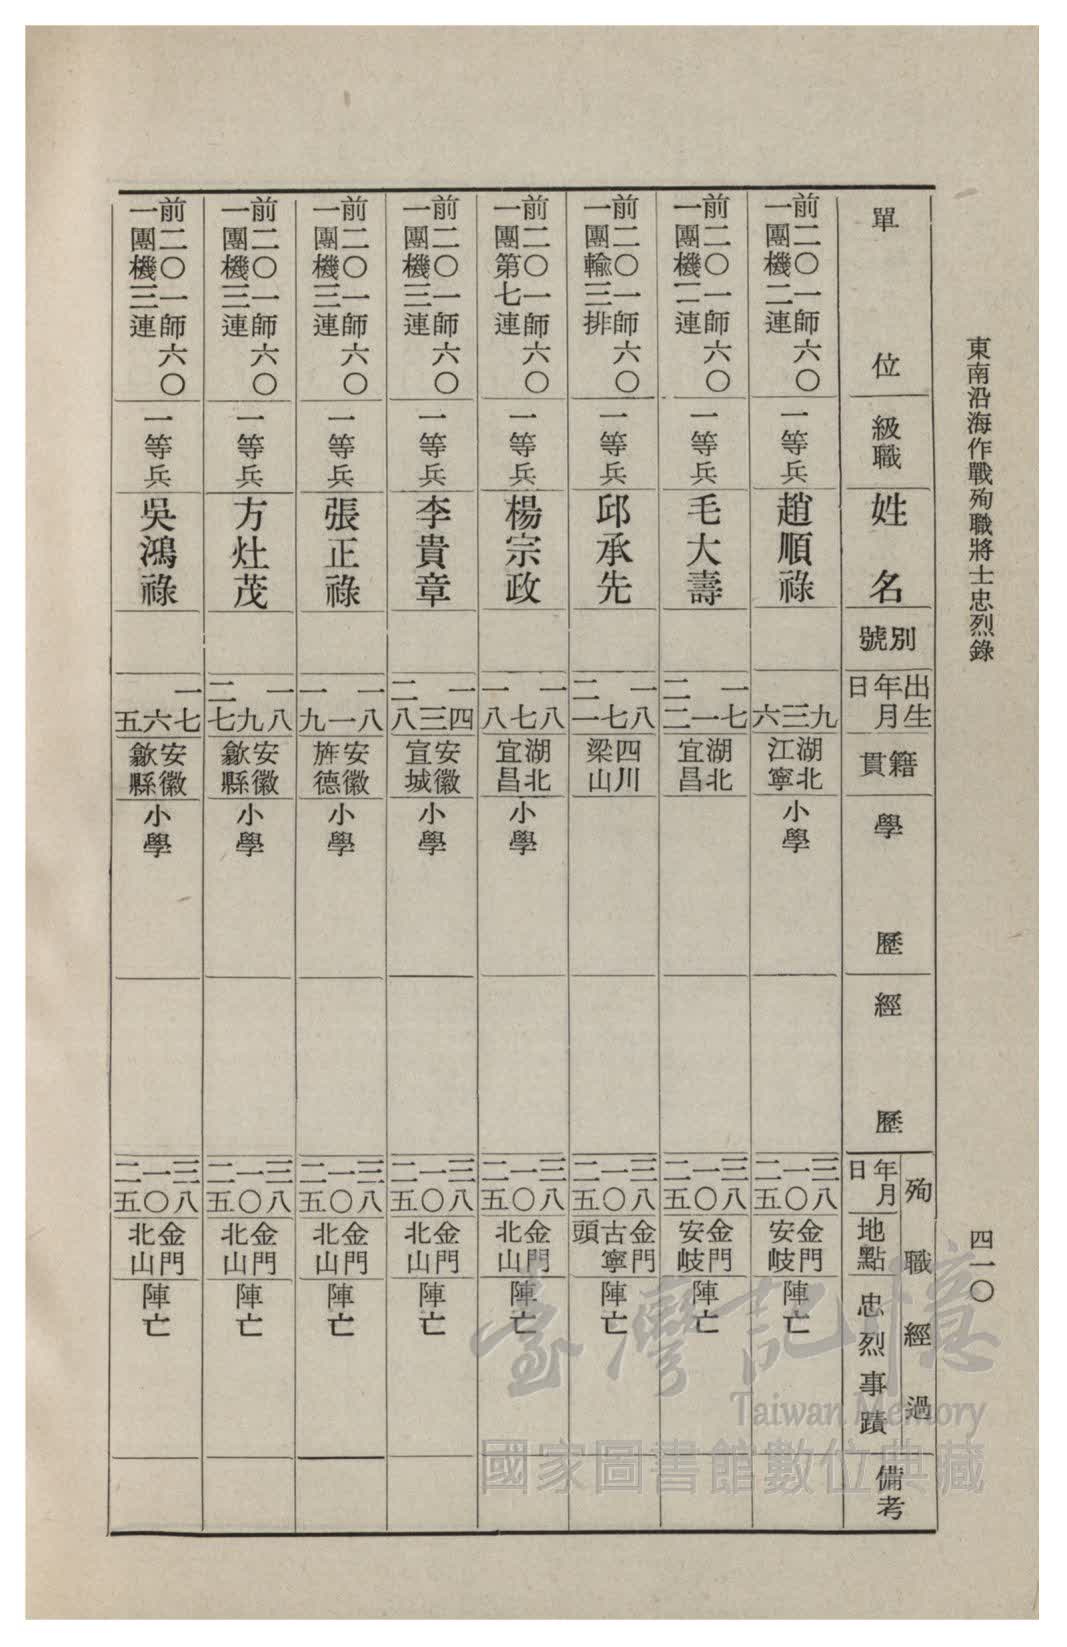 東南沿海作戰殉職將士忠烈錄
四一〇
單位
級職
姓名
別號
出生
年月
日
籍貫
學歷
經歷
殉職經過
年月
日
地點
忠烈事蹟
備考
前二〇一師六〇
一團機二連
一等兵
趙順祿
九
三
六
湖北
江寧
小學
三八
一〇
二五
金門
安岐
陣亡
前二〇一師六〇
一團機二連
一等兵
毛大壽
一七
一
二二
湖北
宜昌
三八
一〇
二五
金門
安岐
陣亡
前二〇一師六〇
一團輸三排
一等兵
邱承先
一八
七
二一
四川
梁山
三八
一〇
二五
金門
古寧
頭
陣亡
前二〇一師六〇
一團第七連
一等兵
楊宗政
一八
七
一八
湖北
宜昌
小學
三八
一〇
二五
金門
北山
陣亡
前二〇一師六〇
一團機三連
一等兵
李貴章
一四
三
二八
安徽
宣城
小學
三八
一〇
二五
金門
北山
陣亡
前二〇一師六〇
一團機三連
一等兵
張正祿
一八
一
一九
安徽
旌德
小學
三八
一〇
二五
金門
北山
陣亡
前二〇一師六〇
一團機三連
一等兵
方灶茂
一八
九
二七
安徽
歙縣
小學
三八
一〇
二五
金門
北山
陣亡
前二〇一師六〇
一團機三連
一等兵
吳鴻祿
一七
六
五
安徽
歙縣
小學
三八
一〇
二五
金門
北山
陣亡
臺灣記憶
Taiwan Memory
國家圖書館數位典藏